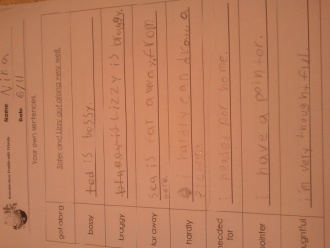 Name Nina
Date 6/11
Your own sentences.
got along
Sate and Lizzy got along very well.
bossy
ted is bossy.
braggy
is lizzy is braggy.
far away
sea is far away from
hardly
i hardly can draw a
headed for
headed for home.
pointer
i have a pointer.
thoughtful
i'm very thoughtful